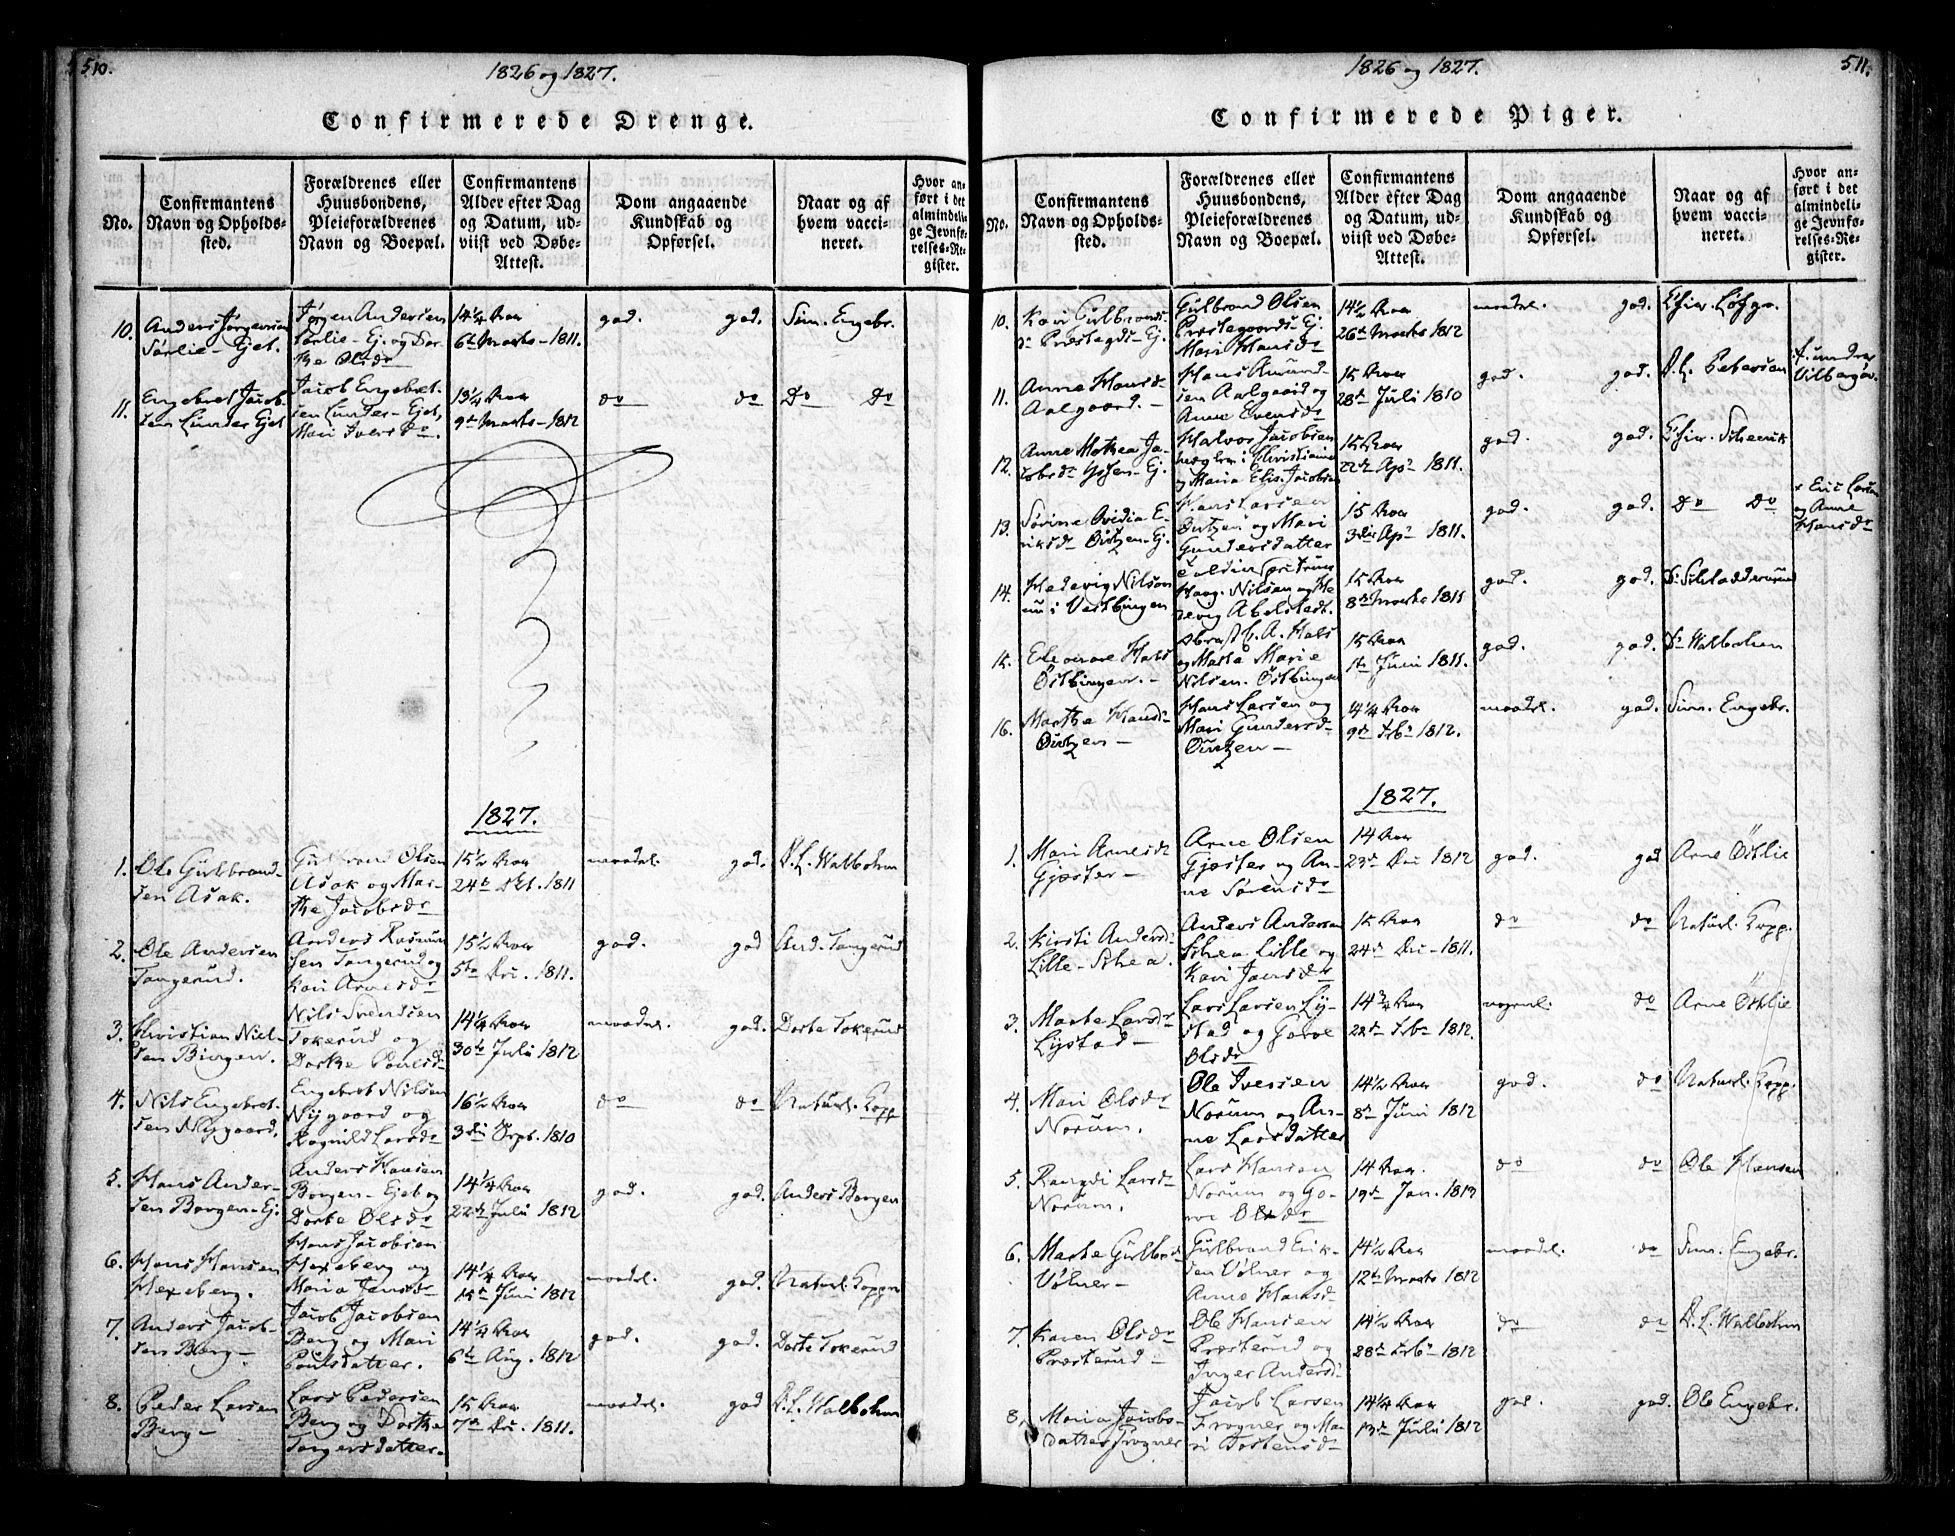 510.
1826 og 1827.
Confirmerede Drenge.
No.
Confirmantens
Navn og Opholds-
sted.
Forældrenes eller
Huusbondens,
Pleieforældrenes
Navn og Boepæl.
Confirmantens
Alder efter Dag
og Datum, ud-
viist ved Døbe-
Attest.
Dom angaaende
Kundskab og
Opførsel.
Naar og af
hvem vacci-
neret.
Hvor an-
ført i det
almindeli-
ge Jevnfø-
relses-Re-
gister.
10.
Anders Jørgensen
Sørlie-Ejet.
Jørgen Andersen
Sørlie-Ej. og Dor-
the Olsdr
14¼ Aar
6te Marts-1811.
god. god.
Sim. Engebr.
11.
Engebret Jacob-
sen Linder Ejet
Jacob Engebret-
sen Linder-Ejet,
Mari Iversdr.
9de Marts-1812
do do
Do Do
1827.
1.
Ole Gulbrand-
sen Asak.
Gulbrand Olsen
Asak og Mar-
the Jacobsdr
15½ Aar
24de 1811
maadel. god.
D.L. Walbohm
2.
Ole Andersen
Tangerud.
Anders
sen Tangerud og
Kari Arnesdr
15½ Aar
5te Dec. 1811.
god. god
And. Tangerud
3.
Christian Niel-
sen Biørgen.
Nils Svendsen
Tokerud og
Dorthe Poulsdr
14¼ Aar
30te Juli 1812
maadel. god.
Dorte Tokerud
4.
Nils Engebret-
sen Nygaard.
Engebret Nilsen
Nygaard og
Ragnild Larsdr
16½ Aar
3die 1810
do do
Naturl. Kopp
5.
Hans Ander-
sen Borgen-Ej.
Anders Hansen
Borgen-Ejet og
Dorte Olsdr
14¼ Aar
22de Juli 1812
god. god.
Anders Borgen
6.
Hans Hansen
Hexeberg.
Hans Jacobsen
Hexeberg og
Maria Jensdr
14¼ Aar
15de Juni 1812
maadel. god.
Naturl. Kopper
7.
Anders Jacob-
sen Berg-
Jacob Jacobsen
Berg og Mari
Poulsdatter.
14¼ Aar
6te Aug. 1812
god. god.
Dorte Tokerud
8.
Peder Larsen
Berg-
Lars Pedersen
Berg og Dorthe
Torgersdatter.
15 Aar
7de Dec. 1811.
maadel. god
D.L. Walbohm
1826 og 1827.
511.
Confirmerede Piger.
No.
Confirmantens
Navn og Opholds-
sted.
Forældrenes eller
Huusbondens,
Pleieforældrenes
Navn og Boepæl.
Confirmantens
Alder efter Dag
og Datum, ud-
viist ved Døbe-
Attest.
Dom angaaende
Kundskab og
Opførsel.
Naar og af
hvem vacci-
neret.
Hvor an-
ført i det
almindeli-
ge Jevnfø-
relses-Re-
gister.
10.
Kari Gulbrands-
dr Præstegds-Ej.
Gulbrand Olsen
Præstegaards-Ej.
Mari Hansdr
14½ Aar
26de Marts 1812
maadel. god.
11.
Anne Hansdr
Aalgaard.-
Hans Amund-
sen Aalgaard og
Anne Evensdr
15 Aar
28de Juli 1810
god. god.
D.L. Petersen
12.
Anne Mathea Ja-
cobsdr
Halvor Jacobsen
i Christiania
og Maria Elis. Jacobsen
15 Aar
22de Apr 1811.
god. god.
13.
Sørine Ovidia E-
riksdr Øutzen-Ej.
Hans Larsen
Øutzen og Mari
Gundersdatter
15 Aar
3die Apr 1811.
god. god.
Do Do
x Eric Larsen
og Anne
Hansdr
14.
Hedevig Nilsen
Vestbingen
Haag. Nilsen og He-
devig Abelstedt.
15 Aar
8de Marts 1811
god. god.
15.
Eleonore Hals
Østbingen.-
A. Hals
og Marta Marie
Nilsen. Østbingen
15 Aar
1te Juni 1811.
god. god.
Dr Walbohm
16.
Marthe Hansdr
Øutzen-
Hans Larsen og
Mari Gundersdr
Øutzen-
14¼ Aar
9de Febr 1812.
maadel. god.
Sim. Engebr.
1827.
1.
Mari Arnesdr
Gjøster-
Arne Olsen
Gjøster og An-
ne Sørensdr
14 Aar
23de Dec 1812
god. god
Arne Østlie
2.
Kirsti Andersdr
Lille-Schea.
Anders Andersen
Schea Lille og
Kari Jensdr
15 Aar
24de Dec-1811.
do do
Naturl. Kopp.
3.
Marte Larsdr
Lystad-
Lars Larsen Ly-
stad og Goroe
Olsdr
14¾ Aar
22de Febr 1812.
do
Arne Østlie
4.
Mari Olsdr
Norum.
Ole Iversen
Norum og An-
ne Larsdatter
14½ Aar
8de Juni 1812
god. do
Naturl. Kopp.
5.
Rangdi Larsdr
Norum.
Lars Hansen
Norum og Go-
roe Olsdr
14 Aar
19de Jan. 1813
do do
Ole Hansen
6.
Marte Gulbrdr
Vølner-
Gulbrand Erik-
sen Vølner og
Anne Hansdr
14½ Aar
12te Marts 1812
maadel. do
Sim. Engebr.
7.
Karen Olsdr
Præsterud-
Ole Hansen
Præsterud og
Inger Andersdr
14½ Aar
28de Febr 1812
do do
D.L. Walbohm
8.
Maria Jacobs-
datter Frogner
Jacob Larsen
Frogner og Ma-
ri Torstensdr
14¼ Aar
13de Juli 1812
god. god.
Ole Engebr.